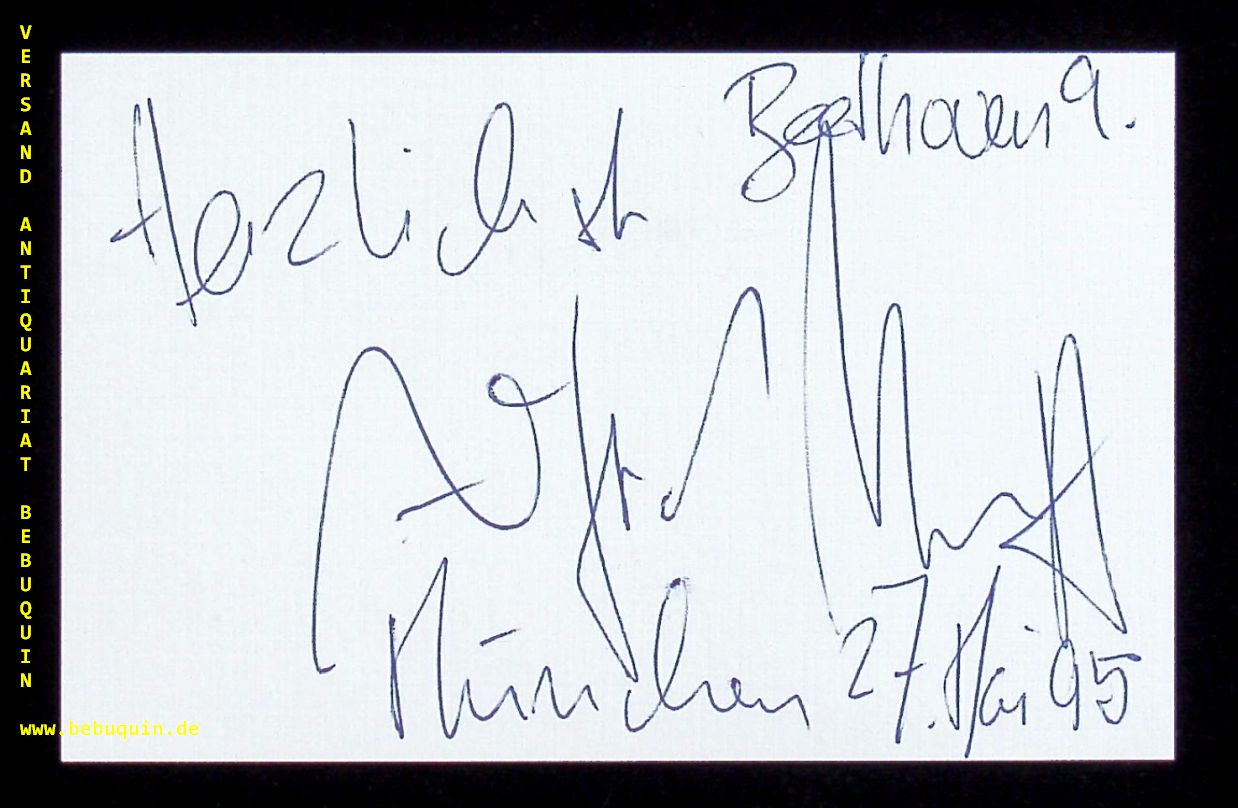 VERSAND ANTIQUARIAT BEBUQUIN
Beethoven 9.
Herzlichst
München 27. Mai 95
www.bebuquin.de